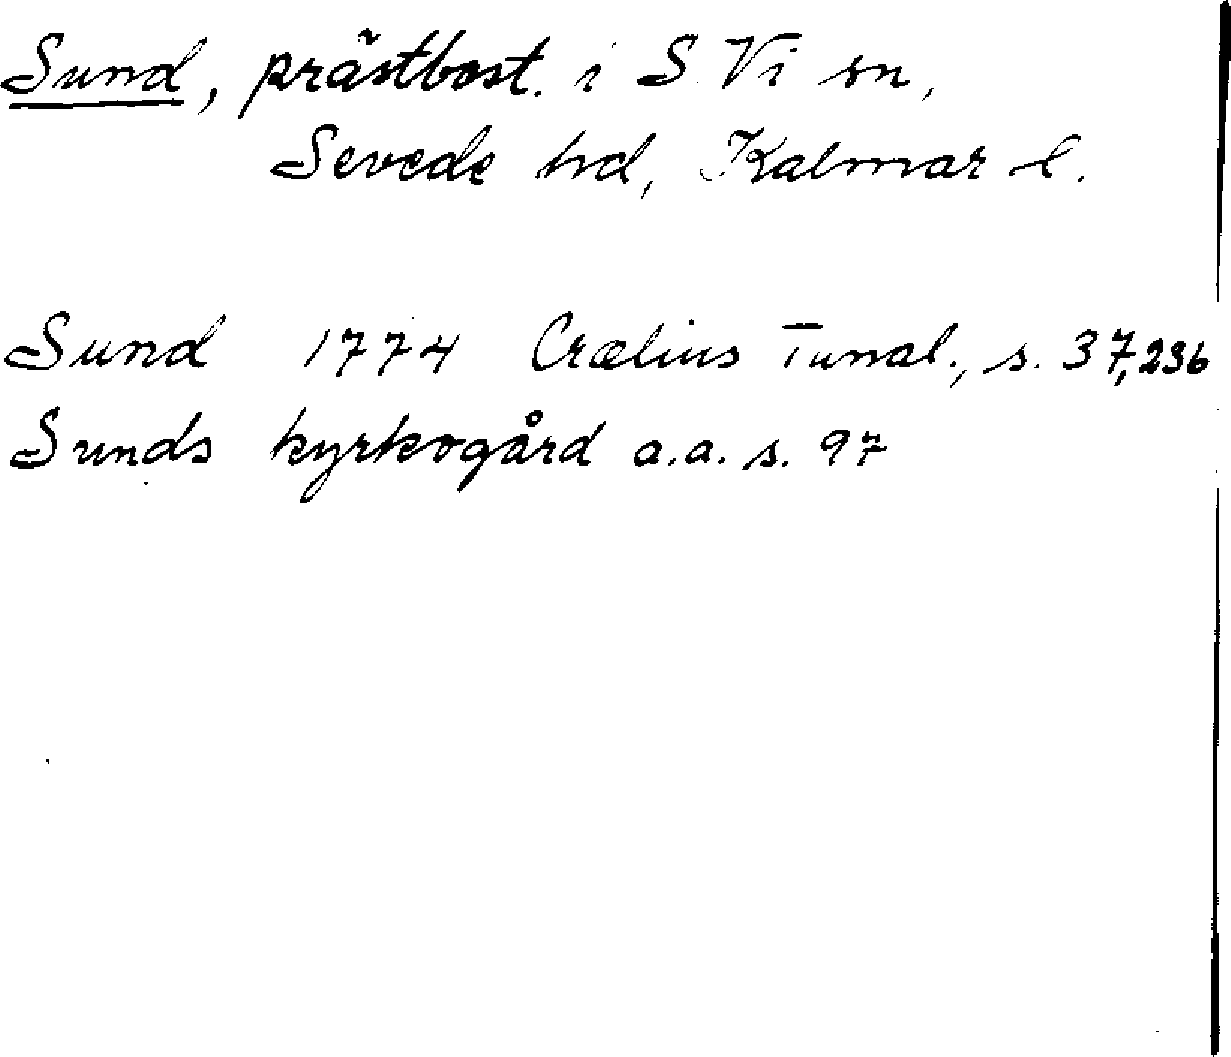 Sund, prästbost. i S. Vi sn,
Sevede hd, Kalmar l.
Sund 1774 Crælius Tunal., s. 37, 236
Sunds kyrkogård a.a. s. 97